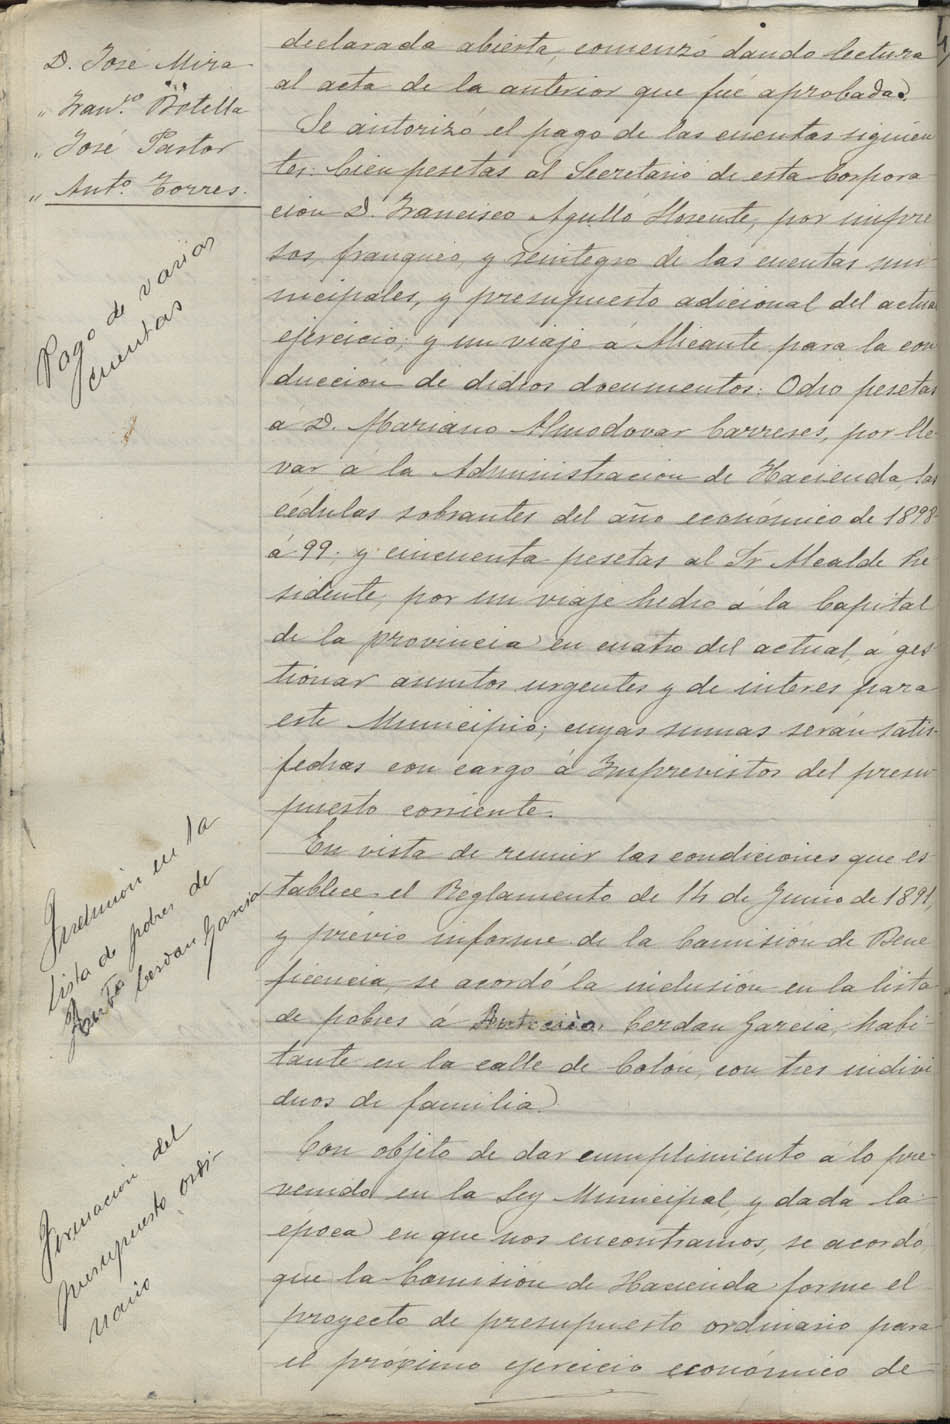 D. José Mira
" Fran.co Botella
" José Pastor
" Ant.o Torres.
Pago de varias
cuentas
Inclusión en la
lista de pobres de
Ant.o Cerdan Garcia
Formación del
presupuesto ordi-
nario
declarada abierta, comenzó dando lectura
al acta de la anterior que fué aprobada.
Se autorizó el pago de las cuentas siguien
tes: Cien pesetas al Secretario de esta Corpora
ción D. Francisco Agulló Llorente, por impre
sos, franqueo, y reintegro de las cuentas mu
nicipales, y presupuesto adicional del actual
ejercicio; y un viaje á Alicante para la con
ducción de dichos documentos: Ocho pesetas
á D. Mariano Almodovar Carreres, por lle
var á la Administracion de Hacienda, las
cédulas sobrantes del año económico de 1898
á 99; y cincuenta pesetas al Sr Alcalde Pre
sidente, por un viaje hecho á la Capital
de la provincia en cuatro del actual, á ges
tionar asuntos urgentes y de interes para
este Municipio; cuyas sumas serán satis-
fechas con cargo á Imprevistos del presu
puesto corriente.
En vista de reunir las condiciones que es
tablece el Reglamento de 14 de Junio de 1891,
y prévio informe de la Comisión de Bene
ficencia, se acordó la inclusión en la lista
de pobres á Antonio Cerdan Garcia, habi-
tante en la calle de Colón, con tres indivi
duos de familia.
Con objeto de dar cumplimiento á lo pre-
venido en la Ley Municipal, y dada la
época en que nos encontramos, se acordó
que la Comisión de Hacienda forme el
proyecto de presupuesto ordinario para
el próximo ejercicio económico de